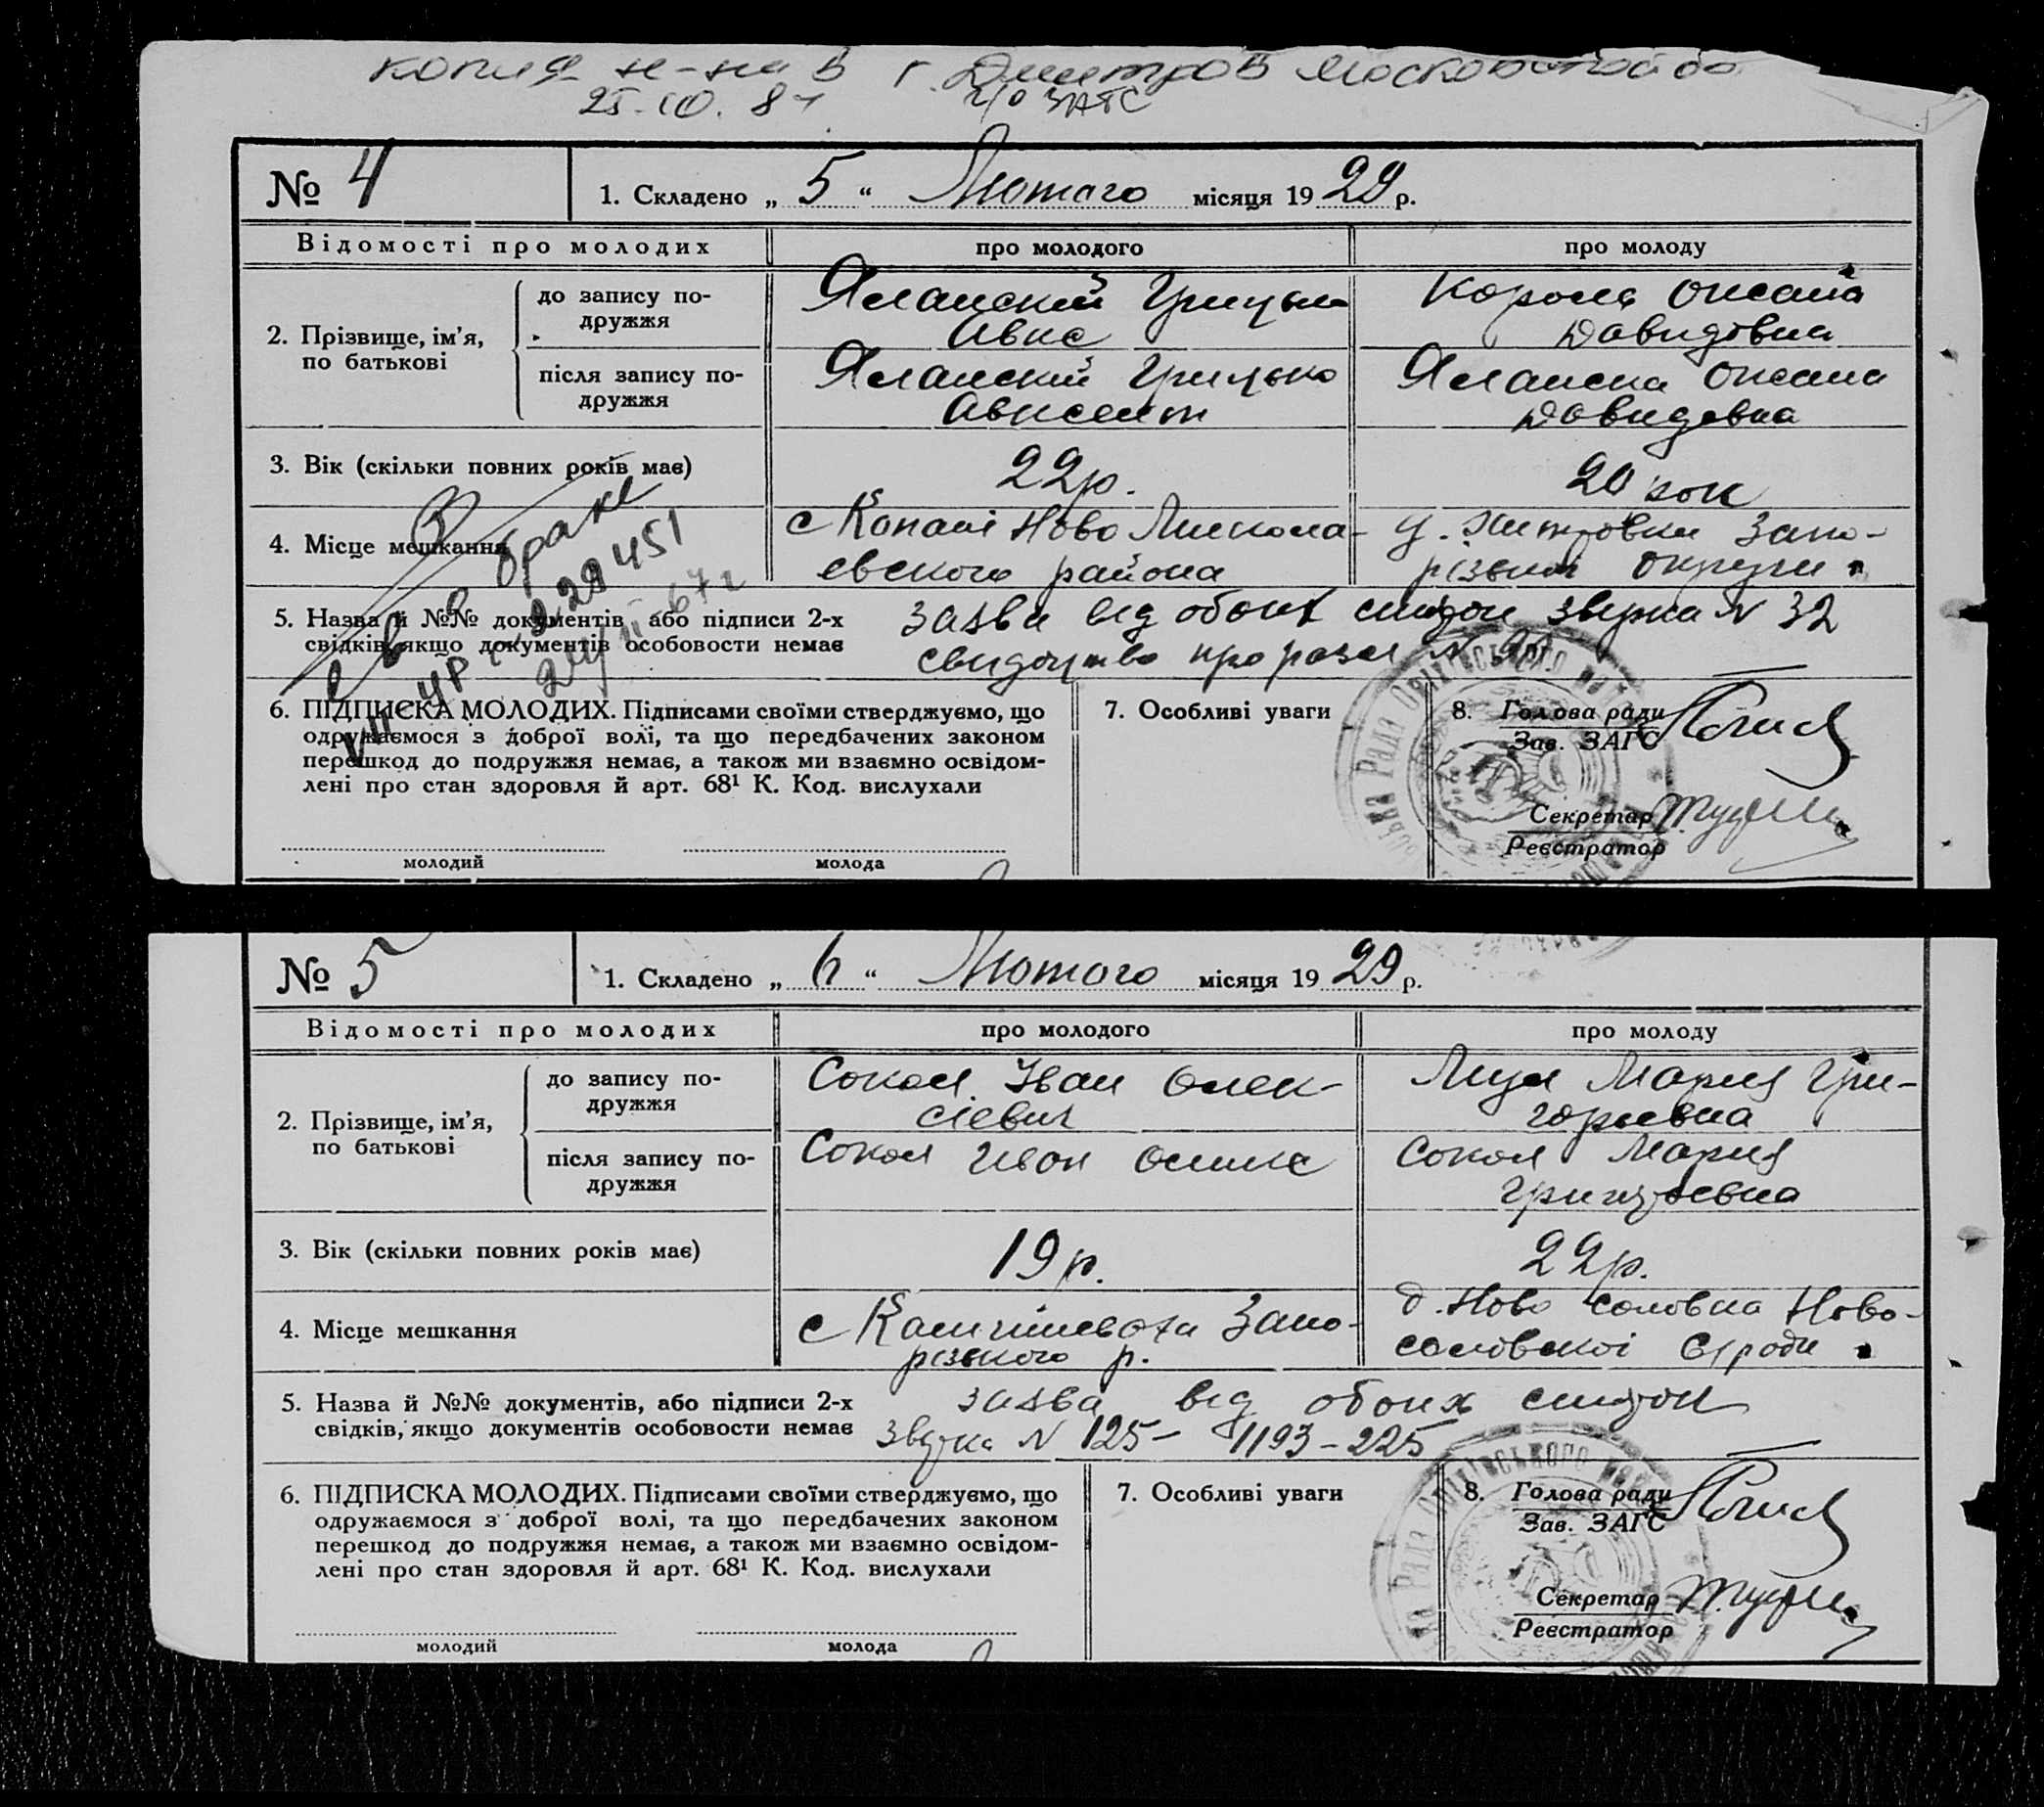 копия н-на в г. Дмитров Московской об
25.10.87 г/о ЗАГС
№ 4
1. Складено „ 5 “ Лютого місяця 1929 р.
Відомості про молодих
про молодого
про молоду
2. Прізвище, ім’я, по батькові
до запису по-
дружжя
Яланский Грицько
Авкс
Король Оксана
Давидовна
після запису по-
дружжя
Яланский Грицько
Авксент
Яланска Оксана
Давидовна
3. Вік (скільки повних років має)
22р.
20 рок
4. Місце мешкання
с Копані Ново Микола-
евского района
Запо-
різької округи
5. Назва й №№ документів або підписи 2-х
свідків, якщо документів особовости немає
заява від обоих сторон звірка N 32
свидоцтво про розв N
о браке
229451
67 г
6. ПІДПИСКА МОЛОДИХ. Підписами своїми стверджуємо, що
одружаємося з доброї волі, та що передбачених законом
перешкод до подружжя немає, а також ми взаємно освідом-
лені про стан здоровля й арт. 68¹ К. Код. вислухали
молодий
молода
7. Особливі уваги
8. Голова ради
Зав. ЗАГС
Секретар
Реєстратор
№ 5
1. Складено „ 6 “ Лютого місяця 1929 р.
Відомості про молодих
про молодого
про молоду
2. Прізвище, ім’я,
по батькові
до запису по-
дружжя
Сокол Іван Олек-
сієвич
Мария Гри-
горьевна
після запису по-
дружжя
Сокол Иван
Сокол Мария
Григорьевна
3. Вік (скільки повних років має)
19р.
22р.
4. Місце мешкання
с Камишеваха Запо-
різького р.
Ново-
соловской с/ради
5. Назва й №№ документів, або підписи 2-х
свідків, якщо документів особовости немає
заява від обоих сторон
звірка N 125 - 1193 - 225
6. ПІДПИСКА МОЛОДИХ. Підписами своїми стверджуємо, що
одружаємося з доброї волі, та що передбачених законом
перешкод до подружжя немає, а також ми взаємно освідом-
лені про стан здоровля й арт. 68¹ К. Код. вислухали
молодий
молода
7. Особливі уваги
8. Голова ради
Зав. ЗАГС
Секретар
Реєстратор